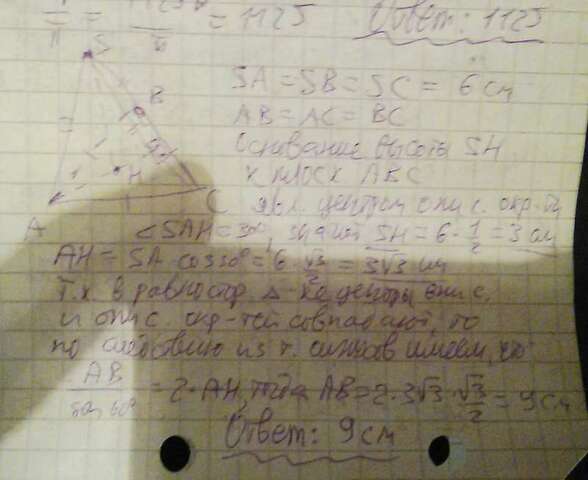 = 1125 Ответ: 1125
S
B
H
A
C
SA = SB = SC = 6 см
AB = AC = BC
Основание высоты SH
к плоск ABC
явл. центром опис. окр-ти
∠SAH = 30°, значит SH = 6 · 1/2 = 3 см
AH = SA · cos30° = 6 · √3/2 = 3√3 см
Т.к. в равностор. Δ-ке центры опис.
и опис. окр-тей совпадают, то
по следствию из т. синусов имеем, что
AB/sin 60° = 2 · AH, тогда AB = 2 · 3√3 · √3/2 = 9 см
Ответ: 9 см